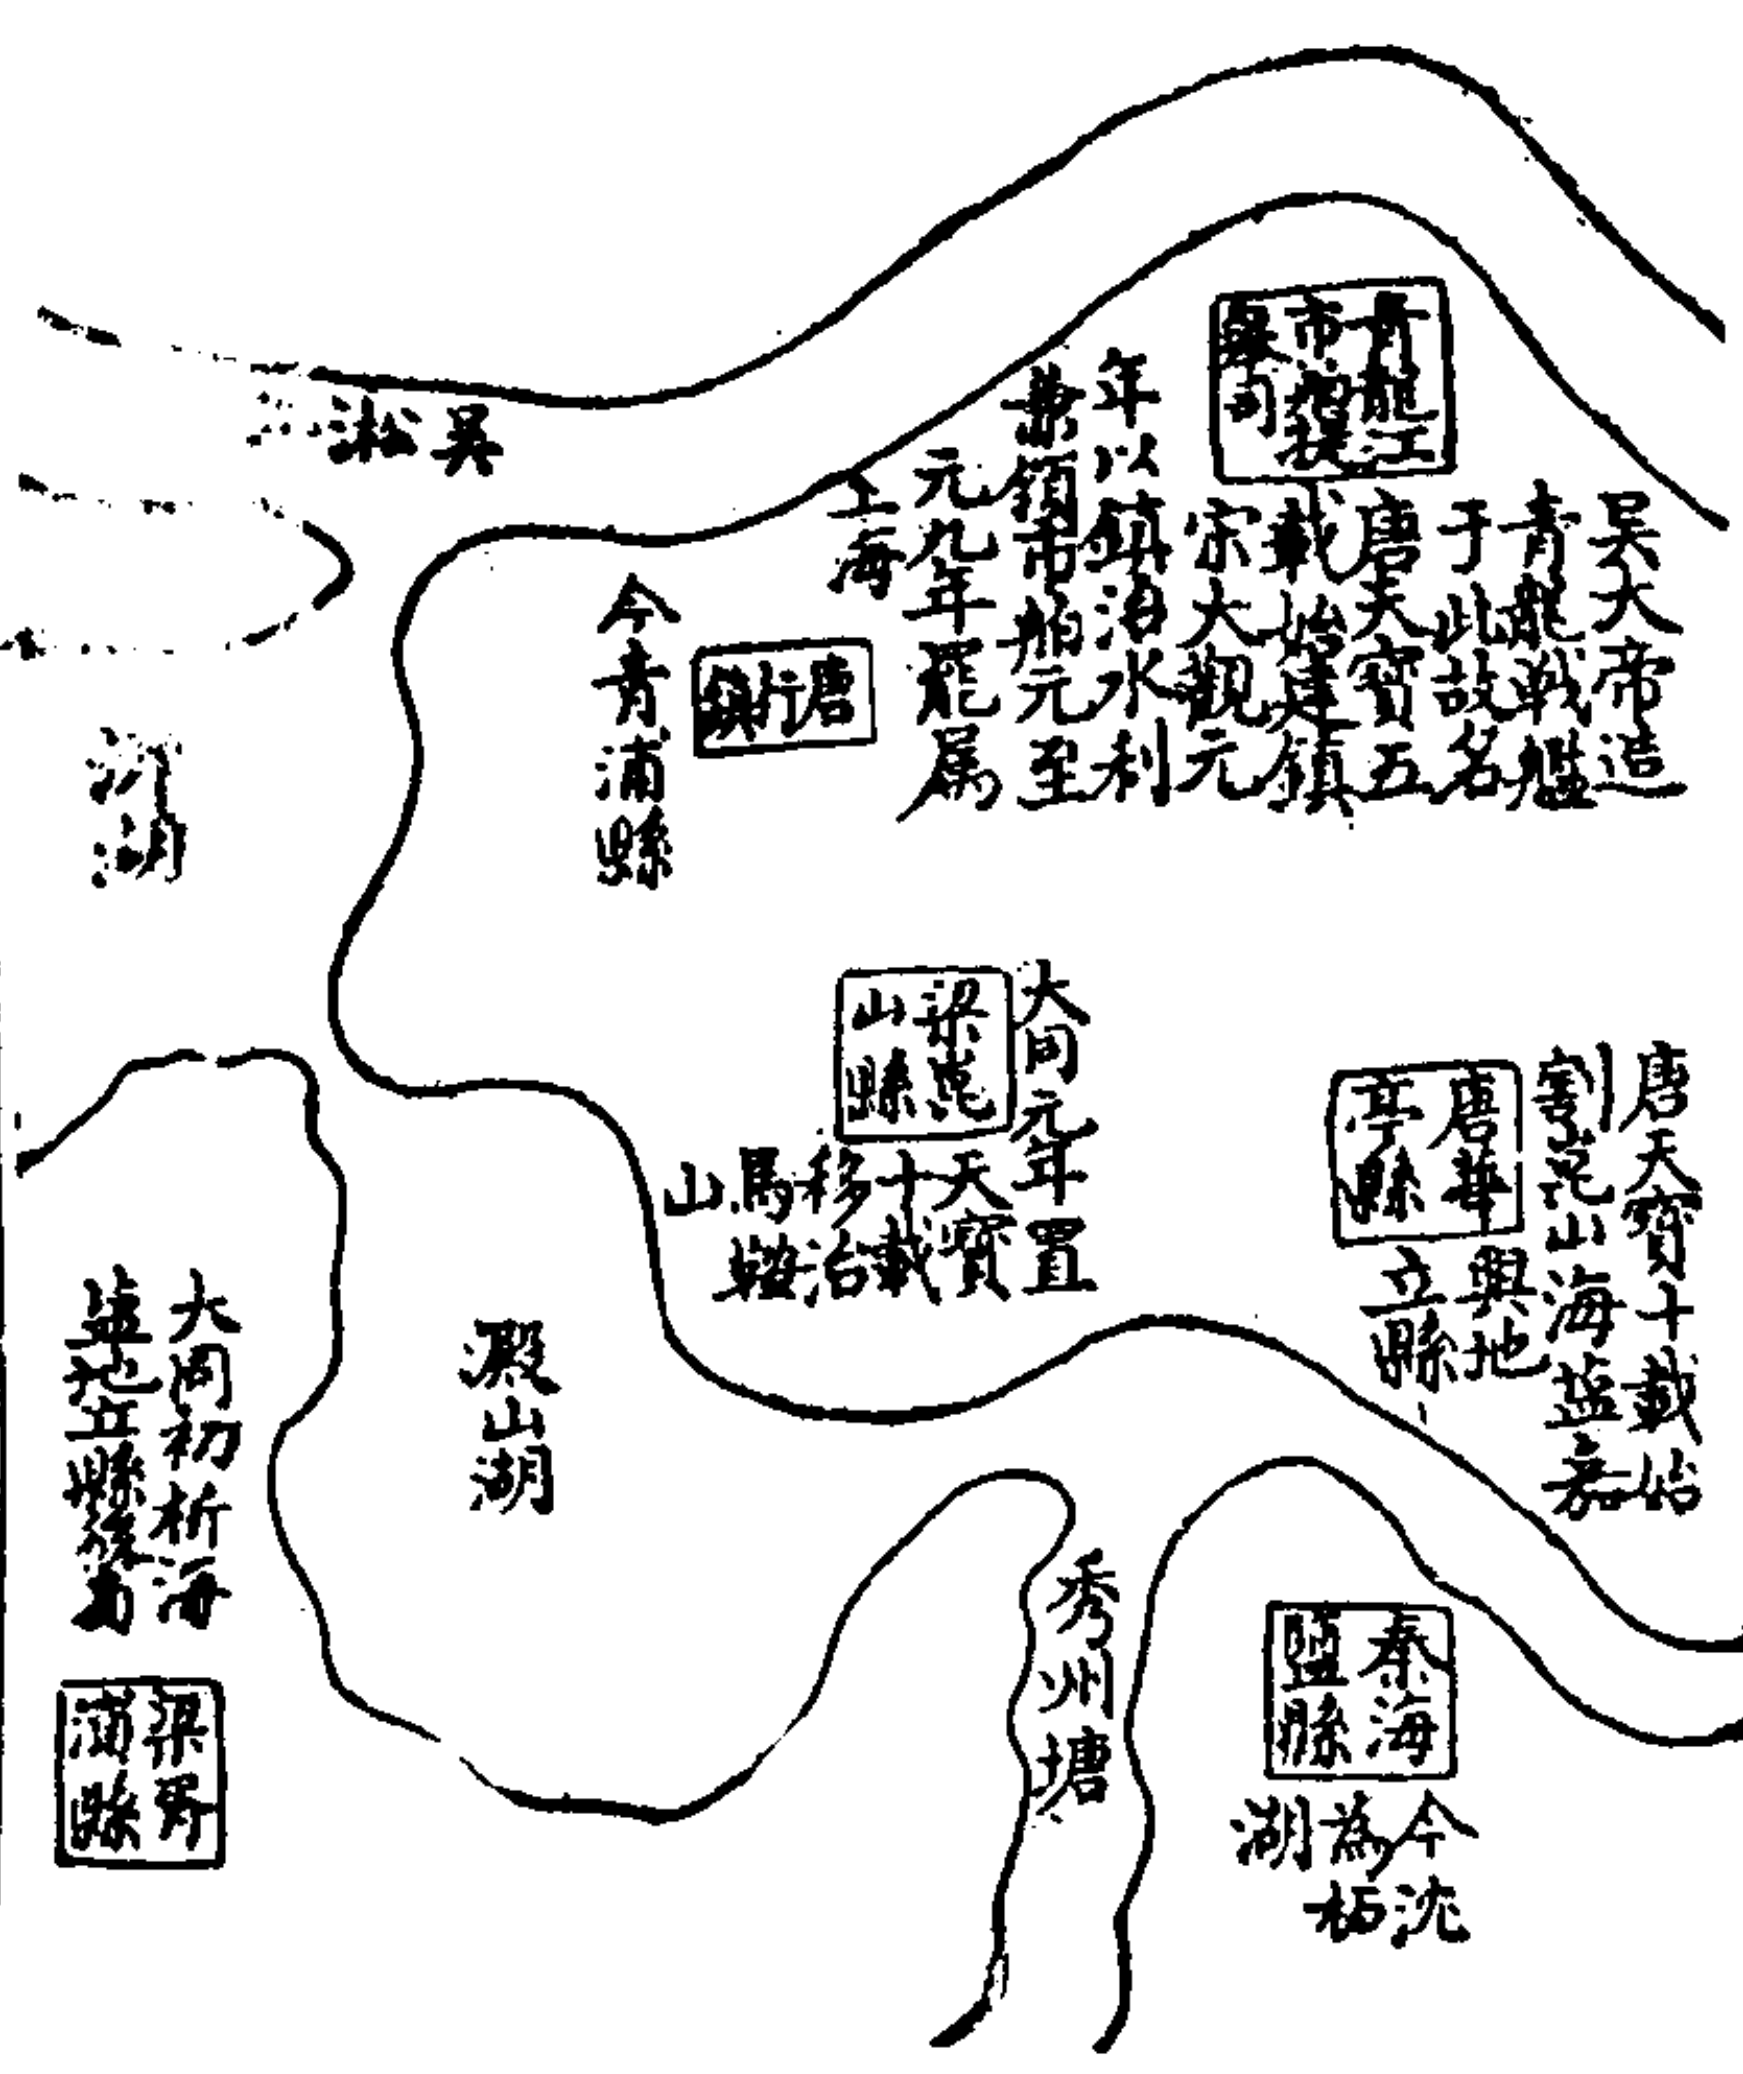 青龍江
市舶提
舉司
吳大帝造
青龍戰艦
于此故名
唐天寶五
載始建鎮
宋大觀元
年以鎮治水利
兼領市舶元至
元九年罷屬
上海
唐行鎮
今青浦縣
吳淞
湖
梁崑
山縣
大同元年置
天寶
十載
移治
馬鞍
山
唐天寶十載始
割崑山海鹽嘉
興地
立縣
唐華
亭縣
澱山湖
大同初析海
鹽地立縣後省
梁胥
浦縣
秀州塘
秦海
鹽縣
今沈
為柘
湖